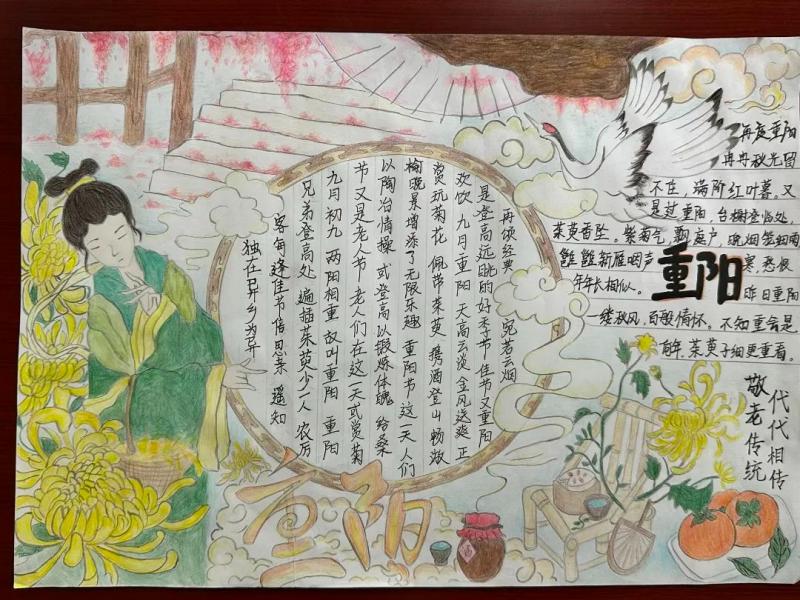 独在异乡为异
客每逢佳节倍思亲 遥知
兄弟登高处 遍插茱萸少一人 农历
九月初九 两阳相重 故叫重阳 重阳
节又是老人节 老人们在这一天或赏菊
以陶冶情操 或登高以锻炼体魄 给桑
榆晚景增添了无限乐趣 重阳节这一天 人们
赏玩菊花 佩带茱萸 携酒登山 畅游
欢饮 九月重阳 天高云淡 金风送爽 正
是登高远眺的好季节 佳节又重阳
再读经典 宛若云烟
重阳
酒
再度重阳
冉冉秋光留
不住，满阶红叶暮。又
是过重阳，台榭登临处，
茱萸香坠。紫菊气，飘庭户，晚烟笼细雨
雝雝新雁咽声寒，愁恨
年年长相似。昨日重阳
一缕秋风，百般情怀。不知重会是
何年，茱萸子细更重看。
重阳
敬老传统
代代相传